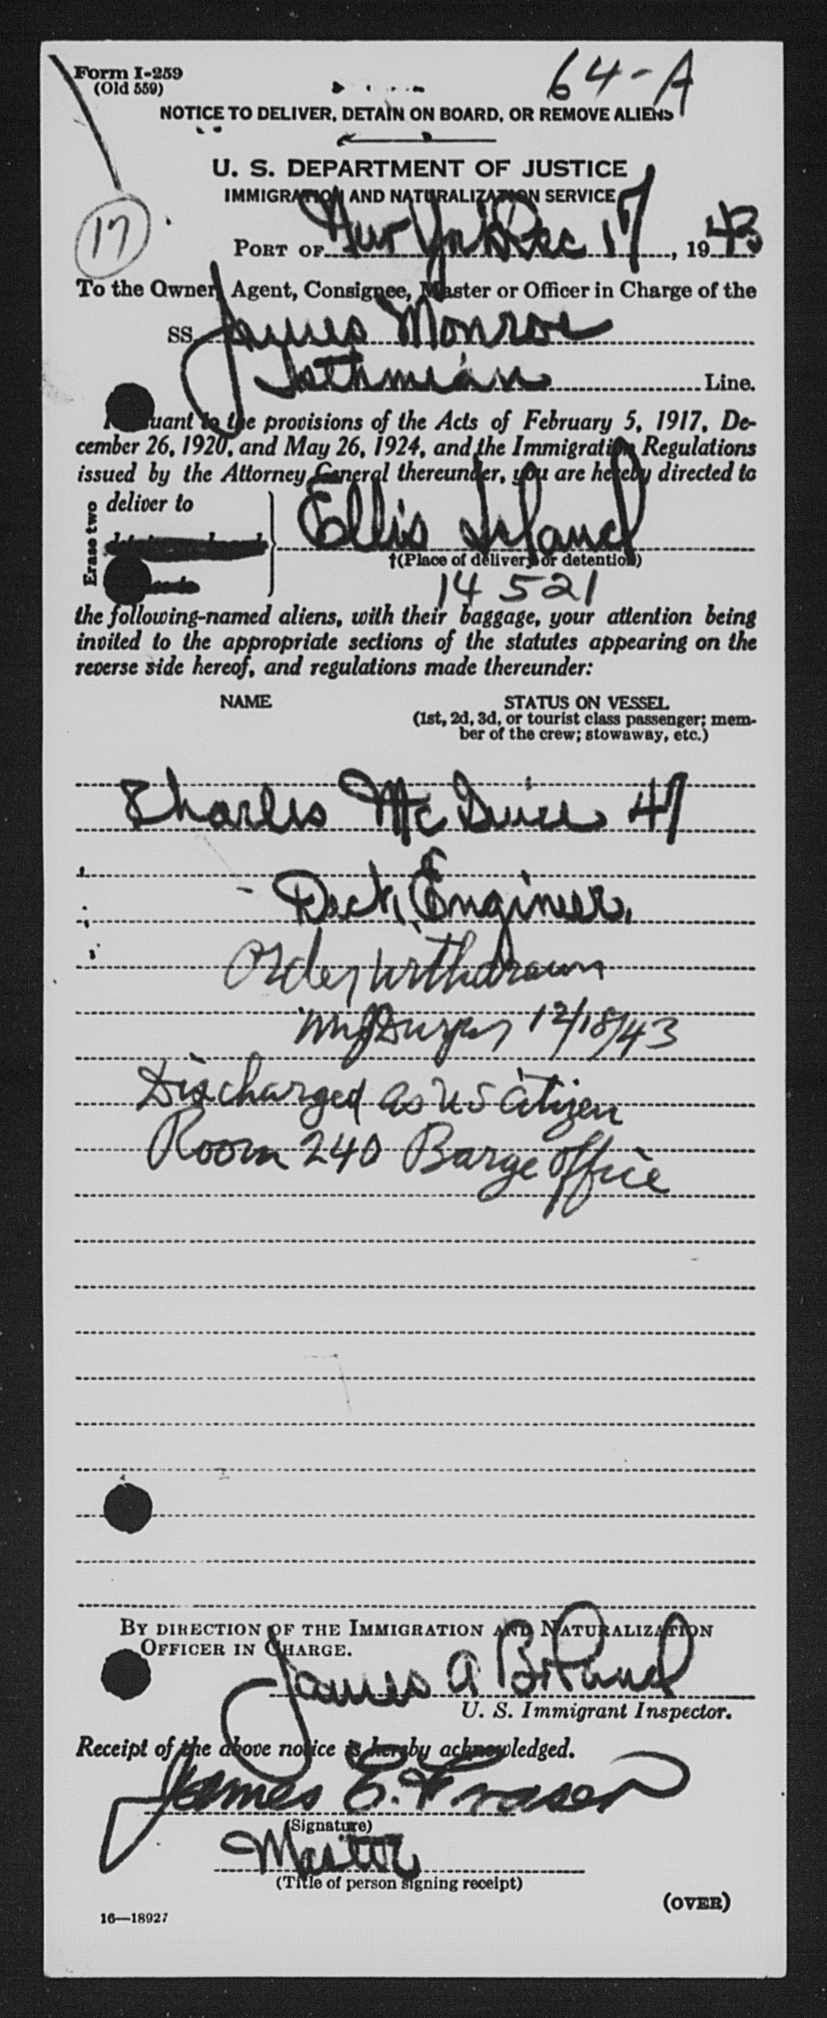 Form I-259
(Old 559)
64-A
NOTICE TO DELIVER, DETAIN ON BOARD, OR REMOVE ALIENS
U. S. DEPARTMENT OF JUSTICE
IMMIGRATION AND NATURALIZATION SERVICE
17
PORT OF New York Dec 17, 1943
To the Owner, Agent, Consignee, Master or Officer in Charge of the
SS James Monroe
Isthmian Line.
Pursuant to the provisions of the Acts of February 5, 1917, De-
cember 26, 1920, and May 26, 1924, and the Immigration Regulations
issued by the Attorney General thereunder, you are hereby directed to
Erase two
deliver to
Ellis Island
†(Place of delivery or detention)
14521
the following-named aliens, with their baggage, your attention being
invited to the appropriate sections of the statutes appearing on the
reverse side hereof, and regulations made thereunder:
NAME STATUS ON VESSEL
(1st, 2d, 3d, or tourist class passenger; mem-
ber of the crew; stowaway, etc.)
Charles McGuire 47
- Deck Engineer.
Order withdrawn
12/18/43
Discharged as US Citizen
Room 240 Barge Office
BY DIRECTION OF THE IMMIGRATION AND NATURALIZATION
OFFICER IN CHARGE.
James A Boland
U. S. Immigrant Inspector.
Receipt of the above notice is hereby acknowledged.
James E. Fraser
(Signature)
Master
(Title of person signing receipt)
(OVER)
16—18927